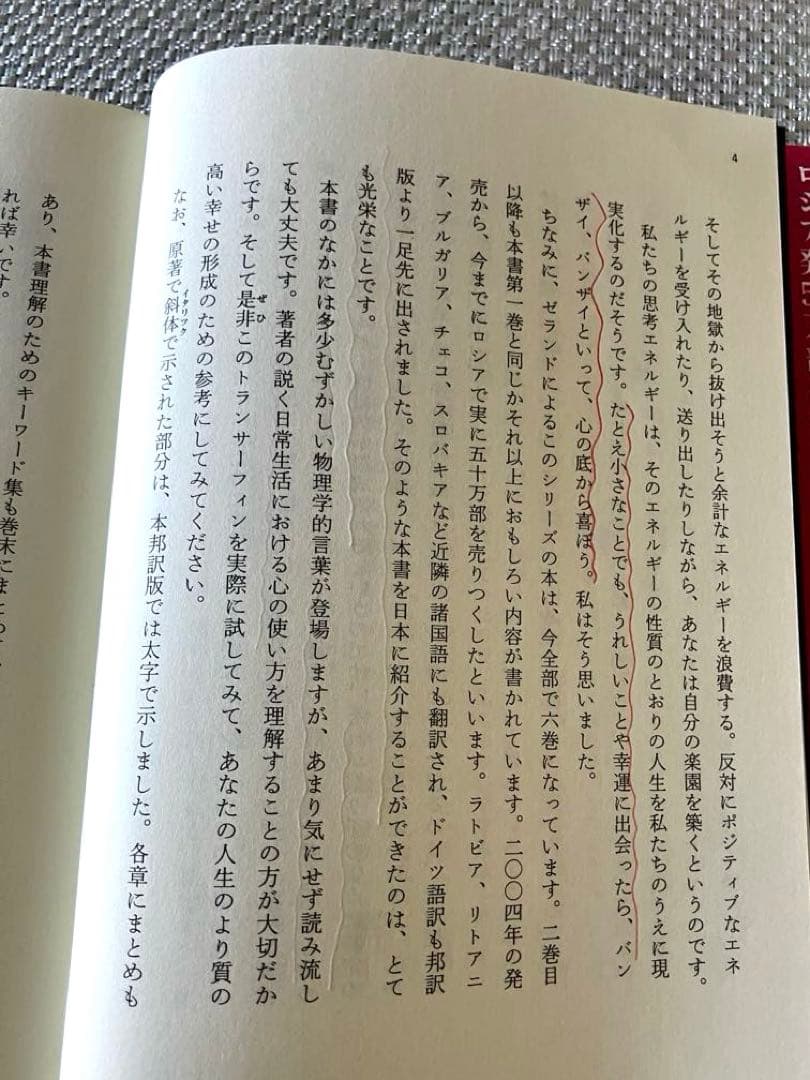 4
そしてその地獄から抜け出そうと余計なエネルギーを浪費する。反対にポジティブなエネ
ルギーを受け入れたり、送り出したりしながら、あなたは自分の楽園を築くというのです。
私たちの思考エネルギーは、そのエネルギーの性質のとおりの人生を私たちのうえに現
実化するのだそうです。たとえ小さなことでも、うれしいことや幸運に出会ったら、バン
ザイ、バンザイといって、心の底から喜ぼう。私はそう思いました。
ちなみに、ゼランドによるこのシリーズの本は、今全部で六巻になっています。二巻目
以降も本書第一巻と同じかそれ以上におもしろい内容が書かれています。二〇〇四年の発
売から、今までにロシアで実に五十万部を売りつくしたといいます。ラトビア、リトアニ
ア、ブルガリア、チェコ、スロバキアなど近隣の諸国語にも翻訳され、ドイツ語訳も邦訳
版より一足先に出されました。そのような本書を日本に紹介することができたのは、とて
も光栄なことです。
本書のなかには多少むずかしい物理学的言葉が登場しますが、あまり気にせず読み流し
ても大丈夫です。著者の説く日常生活における心の使い方を理解することの方が大切だか
らです。そして是非ぜひこのトランサーフィンを実際に試してみて、あなたの人生のより質の
高い幸せの形成のための参考にしてみてください。
なお、原著で斜体イタリックで示された部分は、本邦訳版では太字で示しました。各章にまとめも
あり、本書理解のためのキーワード集も巻末にま
れば幸いです。